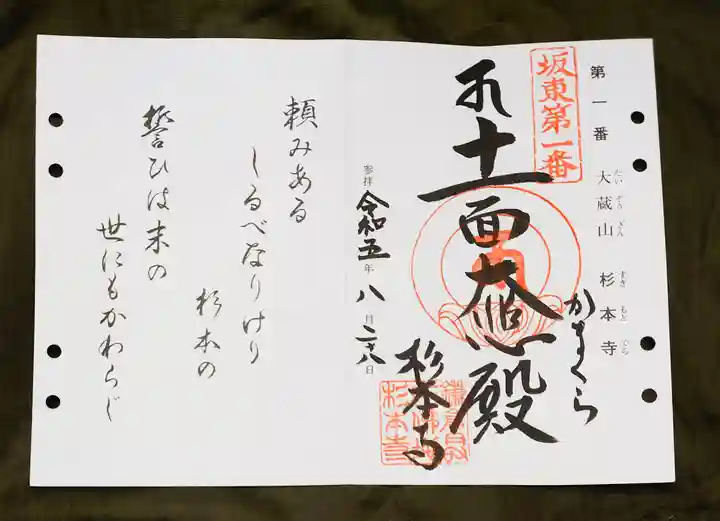 第一番 大蔵山 杉本寺
たいぞうざん すぎもとでら
坂東第一番
かまくら
十一面大悲殿
杉本寺
参拝 令和五年八月二十八日
杉本寺
頼みある
しるべなりけり
杉本の
誓ひは末の
世にもかわらじ